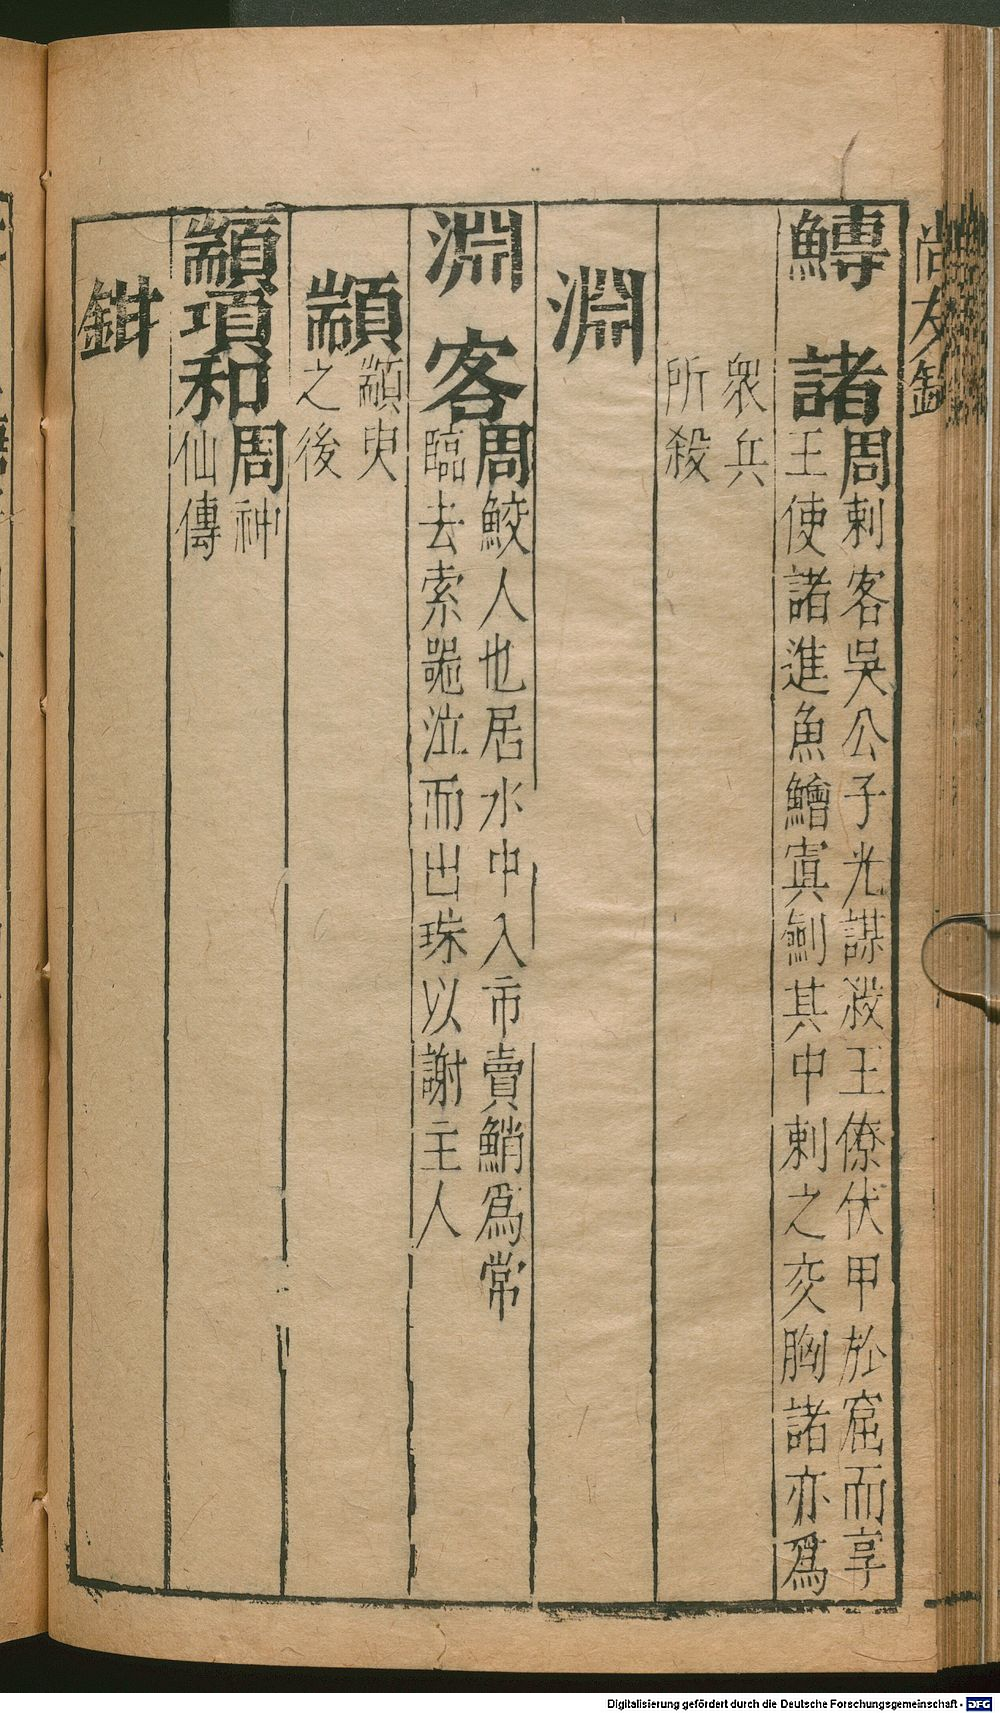 尚友錄
鱄諸周刺客吳公子光謀殺王僚伏甲於窟而享
王使諸進魚鱠寘劍其中刺之交胸諸亦爲
衆兵
所殺
淵
淵客周鮫人也居水中入市賣鮹爲常
臨去索器泣而出珠以謝主人
顓
顓臾
之後
顓項和周神
仙傳
鉗
Digitalisierung gefördert durch die Deutsche Forschungsgemeinschaft - DFG